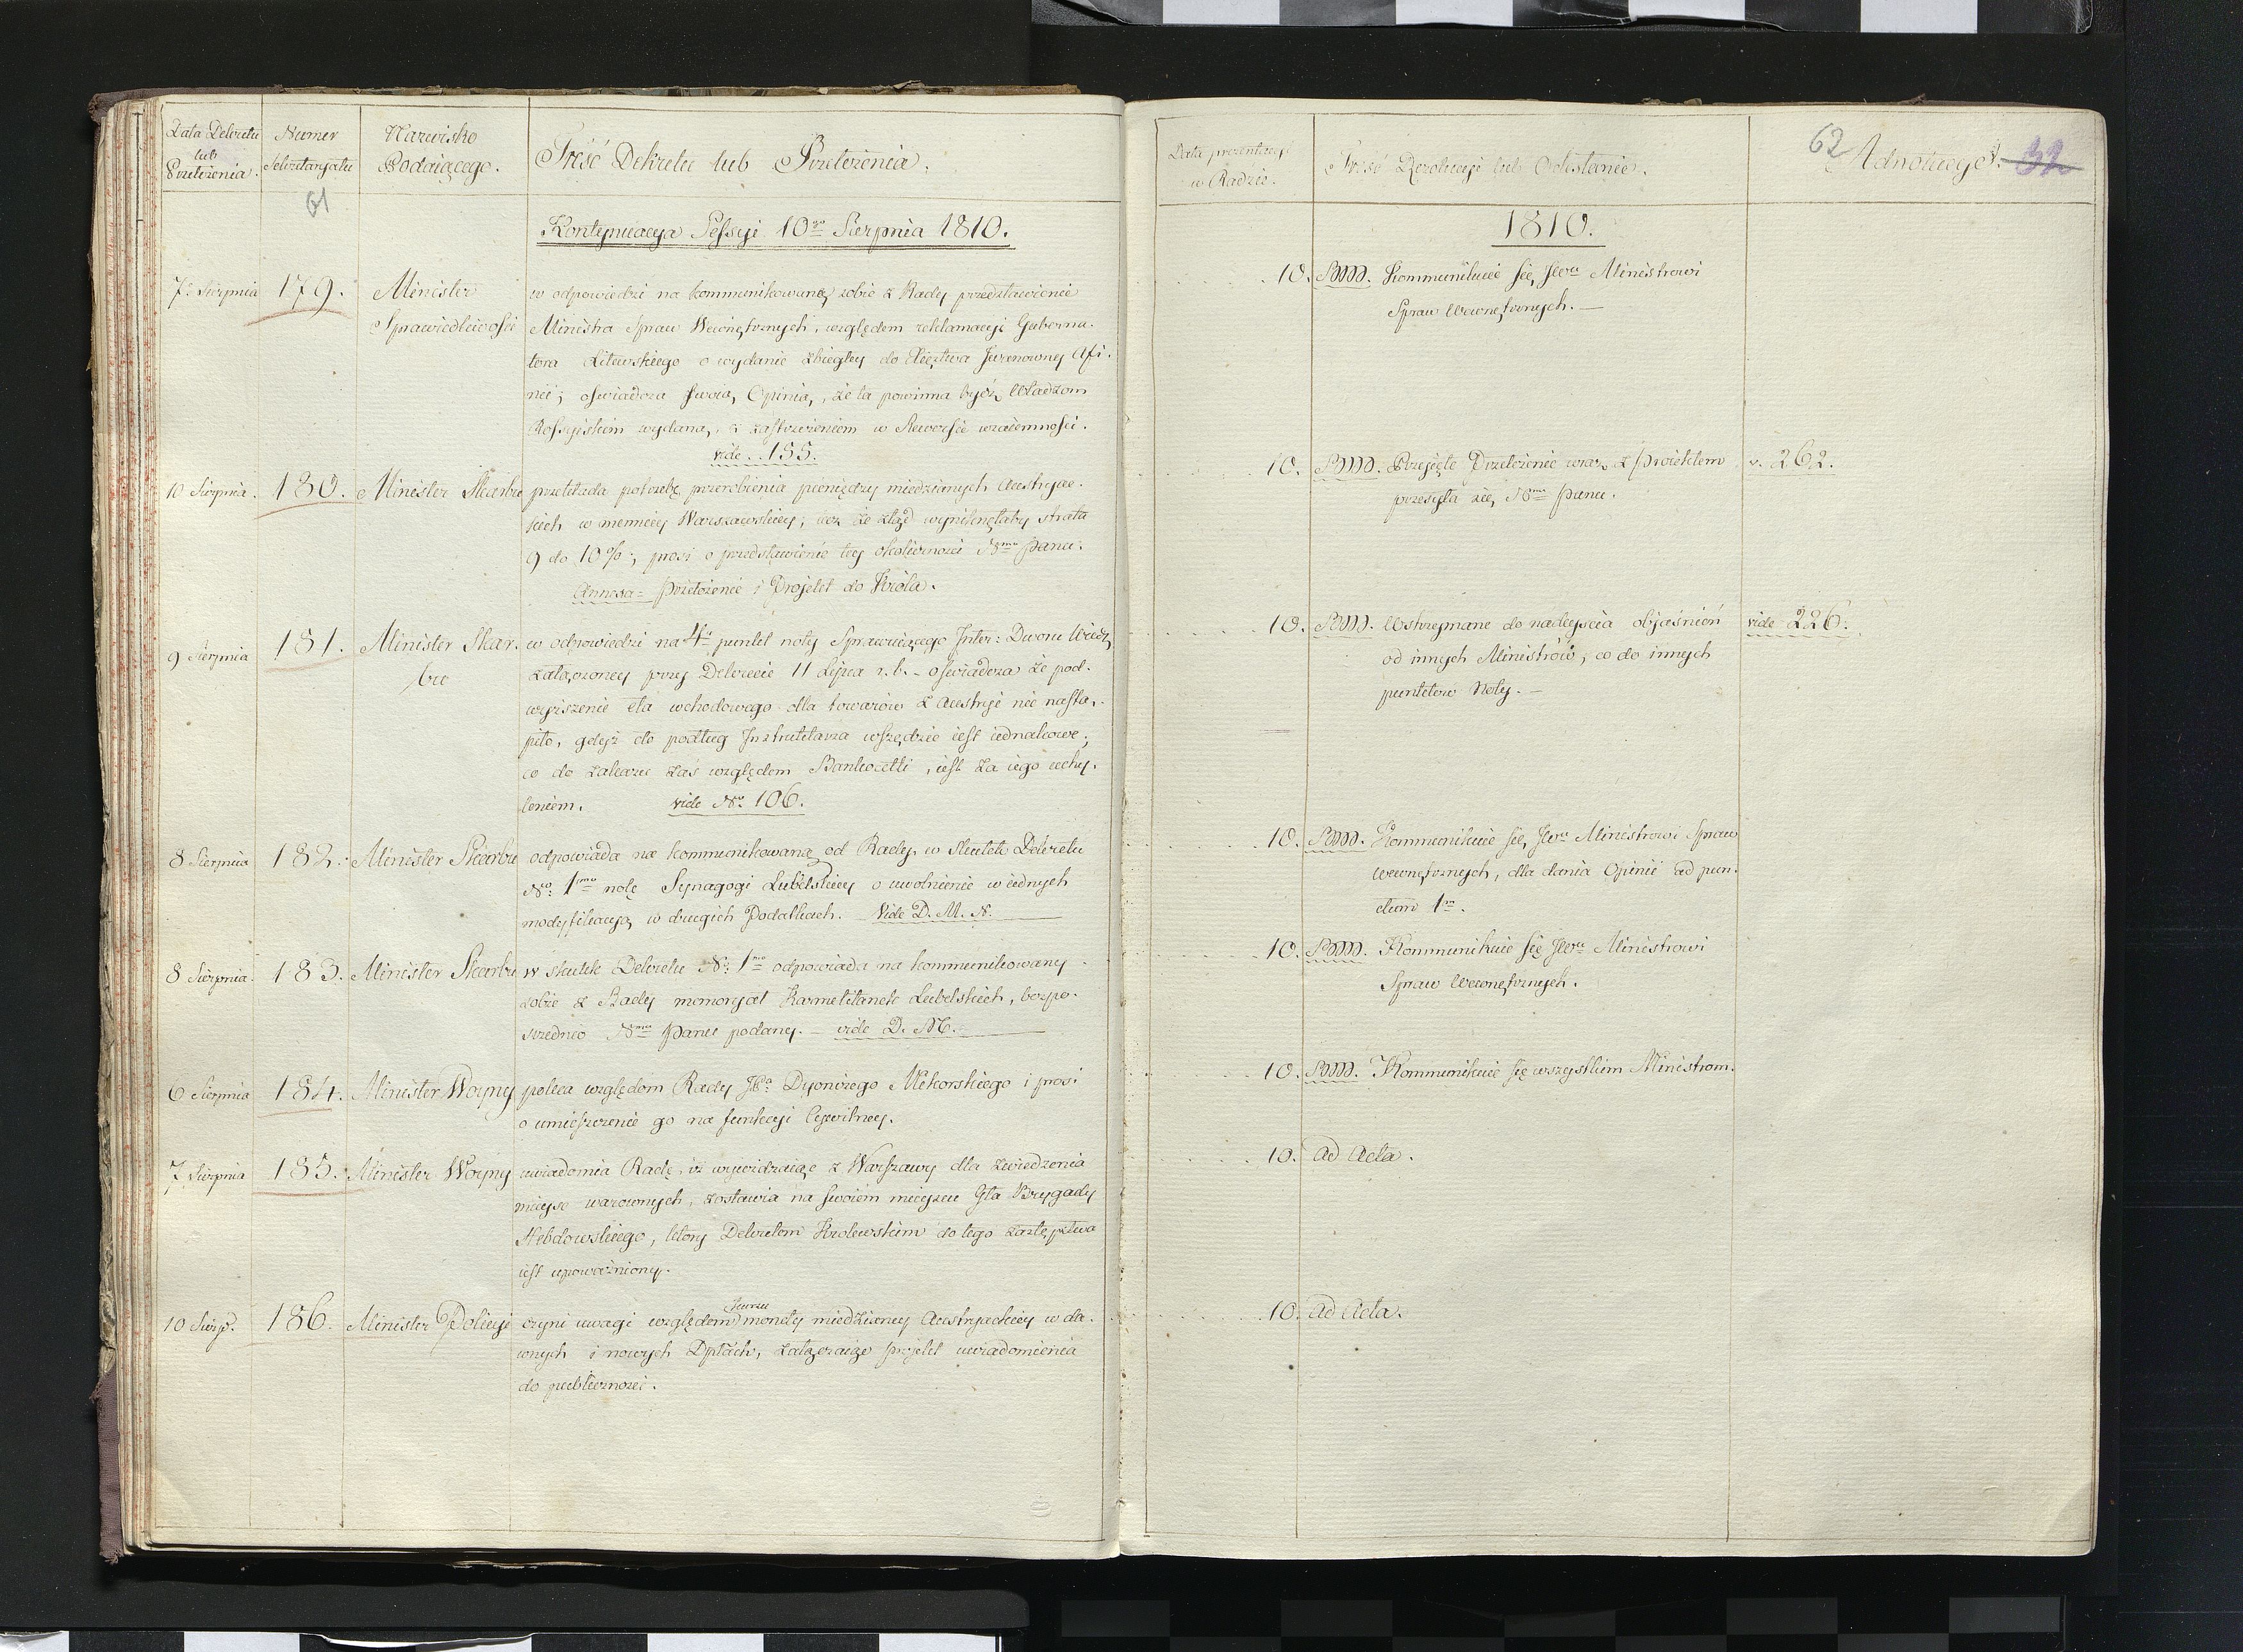 Data Dekretu
lub
Przełożenia.
Numer
Sekretaryatu
61
Nazwisko
Podaiącego.
Treść Dekretu lub Przełożenia.
Kontynuacya Sessyi 10go Sierpnia 1810.
7. Sierpnia 179. Minister
Sprawiedliwości
w odpowiedzi na kommunikowane sobie z Rady przedstawienie
Ministra Spraw Wewnętrznych, względem reklamacyi Guberna-
tora Litewskiego o wydanie zbiegłey do Xięztwa Iwanowney Afi-
nii; oświadcza swoią Opinią, że ta powinna bydź Władzom
Rossyiskim wydaną, z zastrzeżeniem w Rewersie wzaiemności.
vide. 155.
10 Sierpnia. 180. Minister Skarbu
przekłada potrzebę przerobienia pieniędzy miedzianych Austryac-
kich w mennicy Warszawskiey; lecz że ztąd wyniknęłaby strata
9 do 10%; prosi o przedstawienie tey okoliczności Nmu Panu.
Annexa = Przełożenie i Projekt do Króla.
9 Sierpnia 181. Minister Skar-
bu
w odpowiedzi na 4ty punkt noty Sprawuiącego Inter: Dworu Wied:
załączoney przy Dekrecie 11 Lipca r. b. – oświadcza że pod-
wyższenie cła wchodowego dla towarów z Austryi nie nastą-
piło, gdyż co podług Instruktarza wszędzie iest iednakowe;
co do zakazu zaś względem Bankocetli, iest za iego uchy-
leniem. vide No. 106.
8 Sierpnia 182. Minister Skarbu
odpowiada na kommunikowaną od Rady w skutek Dekretu
No. 1mo notę Synagogi Lubelskiey o uwolnienie w iednych
modyfikacyą w drugich Podatkach. Vide D. M. N.
8 Sierpnia. 183. Minister Skarbu
w skutek Dekretu No. 1mo odpowiada na kommunikowany
sobie z Rady memoryał Karmelitanek Lubelskich, bezpo-
srzednio Nmu Panu podany. – vide D. M.
6 Sierpnia 184. Minister Woyny
poleca względom Rady JPa. Dyonizego Mekorskiego i prosi
o umieszczenie go na funkcyi Cywilney.
7 Sierpnia 185. Minister Woyny
uwiadomia Radę, iż wyieżdzaiąc z Warszawy dla zwiedzenia
mieysc warownych, zostawia na swoiém mieyscu Gła Brygady
Hebdowskiego, który Dekretem Krolewskim do tego zastępstwa
iest upoważniony.
10 Sierp. 186. Minister Policyi
czyni uwagi względem kursu monety miedzianey Austryackiey w da-
wnych i nowych Dptach, załączaiąc projekt uwiadomienia
do publiczności.
Data prezentacyi
w Radzie.
Treść Rezolucyi lub Odesłanie.
62
Adnotacye.
32
1810.
10. Kommunikuie się JWu Ministrowi
Spraw Wewnętrznych. –
10. Przyjęte Przełożenie wraz z projektem
przesyła się Nmu Panu.
v. 262.
10. Wstrzymane do nadeyścia objaśnień
od innych Ministrów, co do innych
punktow Noty. –
vide 226.
10. Kommunikuie się JWu Ministrowi Spraw
wewnętrznych, dla dania Opinii ad pun-
ctum 1m.
10. Kommunikuie się JWu Ministrowi
Spraw Wewnętrznych.
10. Kommunikuie się wszystkim Ministrom.
10. Ad Acta.
10. Ad Acta.